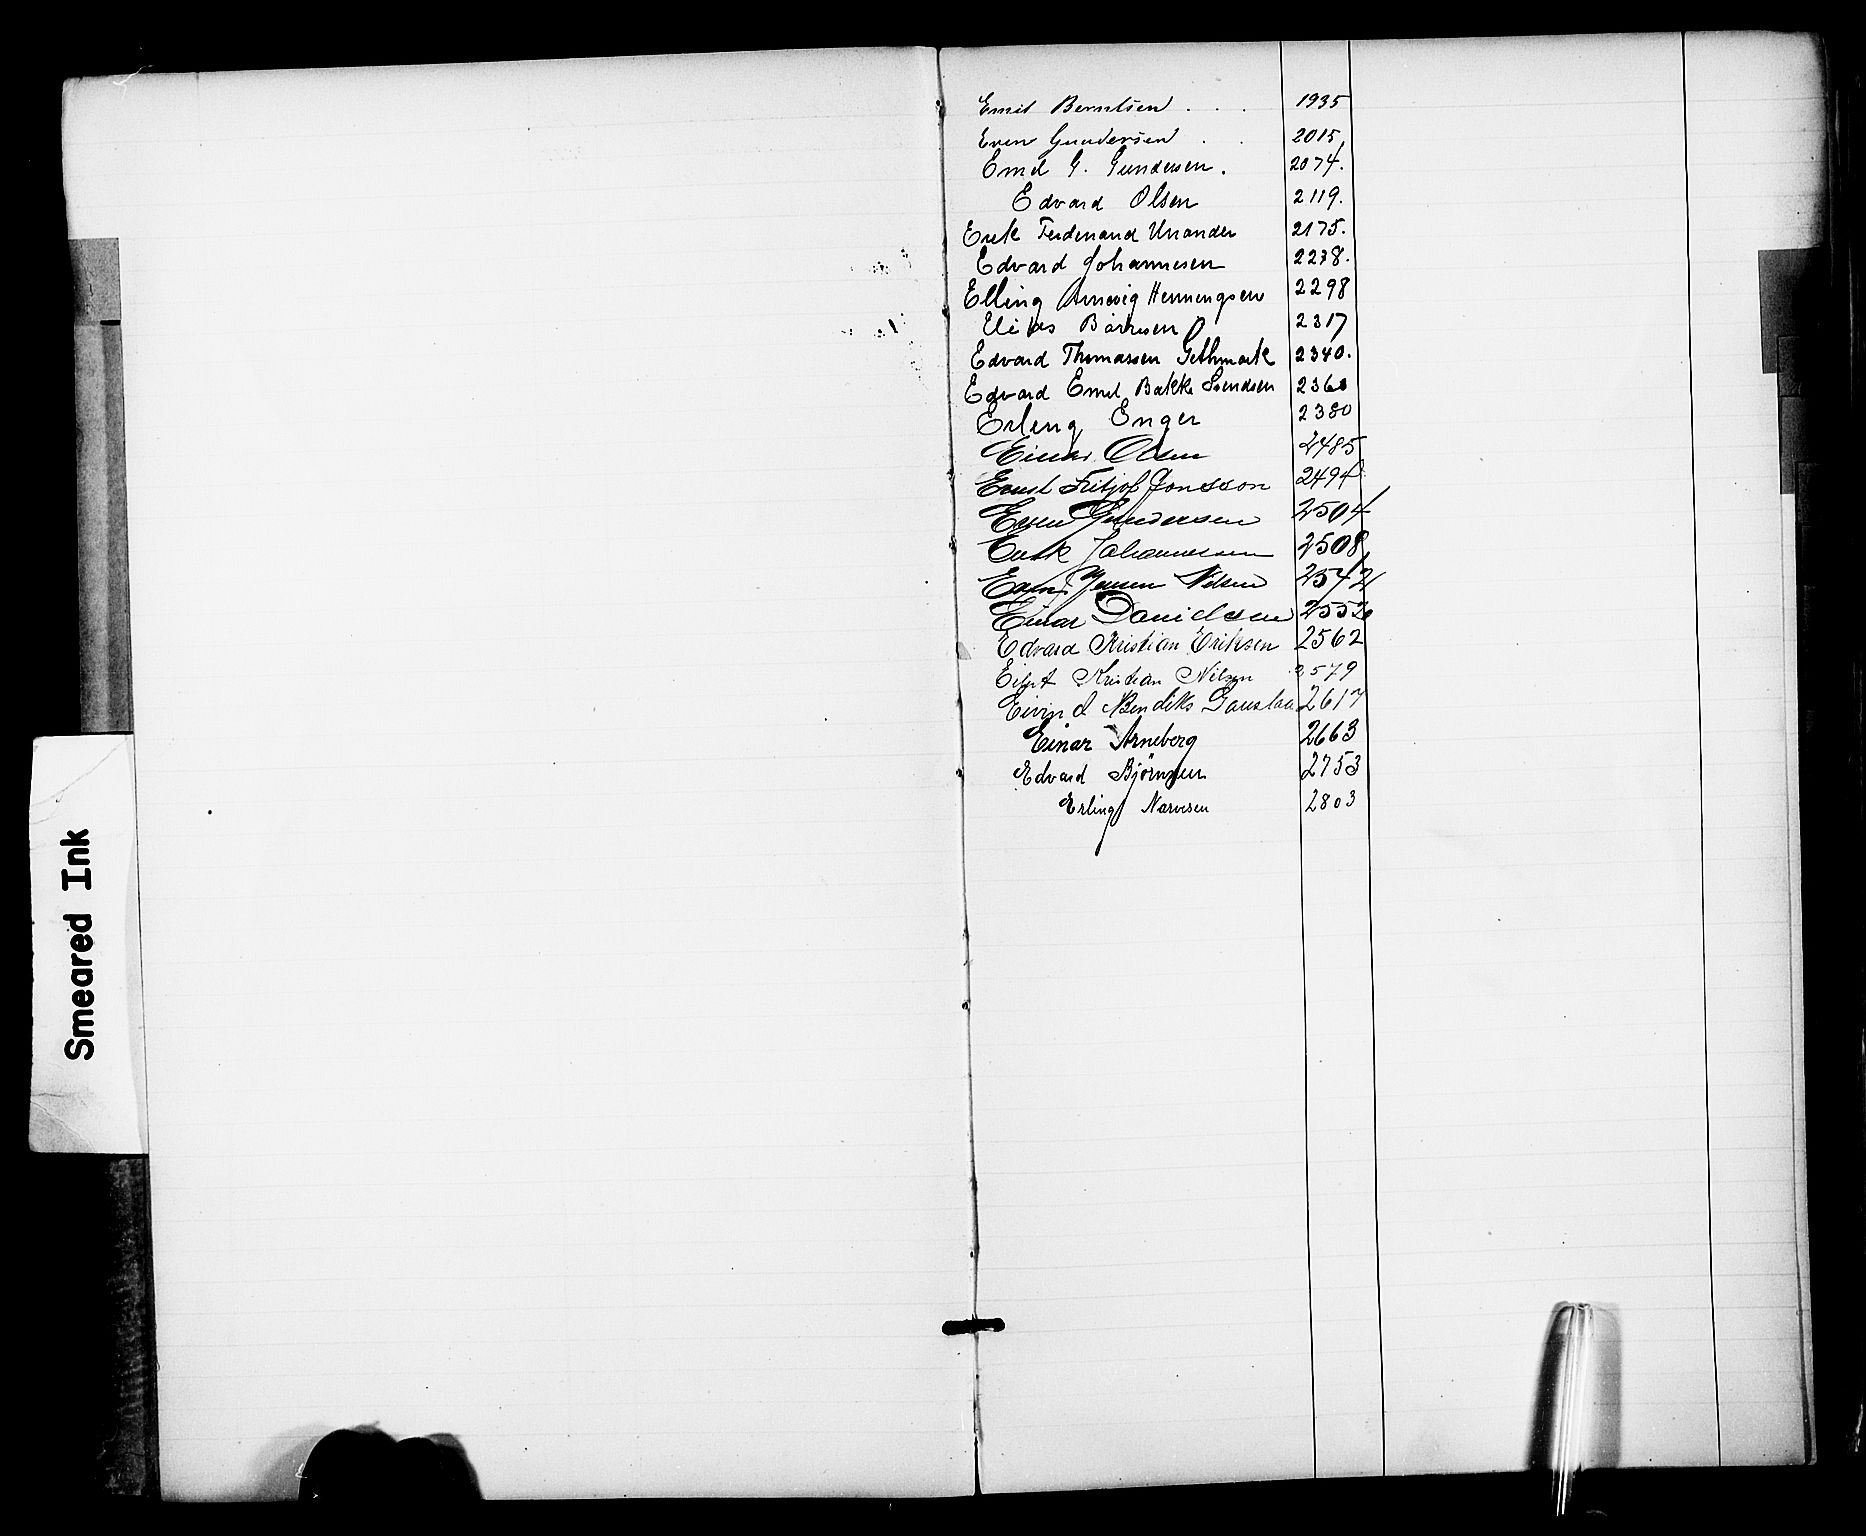 Emil Berntsen . . . 1935
Even Gundersen . . 2015
Emil G. Gundersen. 2074.
Edvard Olsen 2119.
Erik Ferdinand Unander 2175.
Edvard Johannesen 2238.
Elling Arnevig Henningsen 2298
Elias Børresen 2317
Edvard Thomassen 2340.
Edvard Emil Bakke Svendsen 2360
Erling Enger 2380
Einar Olsen 2485
Ernst Fritjof Jonsson 2494
Even Gundersen 2504
Erik Johannessen 2508
Jensen Nilsen 2542
Einar Danielsen 2552
Edvard Kristian Eriksen 2562
Kristian Nilsen 2579
Eivind Bendiks Gauslaa 2617
Einar Arneberg 2663
Edvard Bjørnsen 2753
Erling Narvesen 2803
Smeared Ink